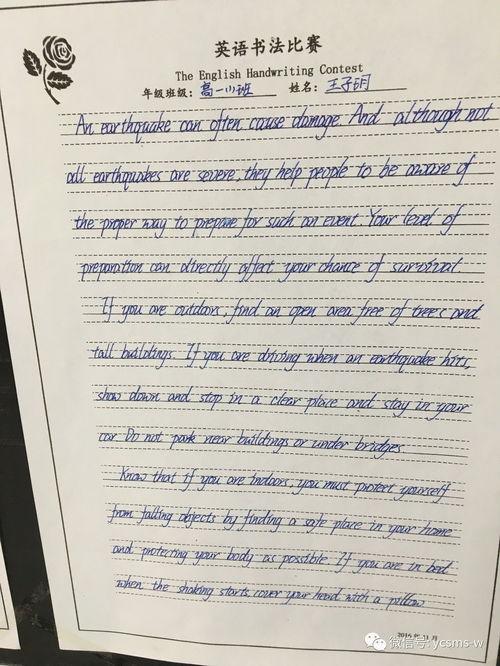 英语书法比赛
The English Handwriting Contest
年级班级：高一小班 姓名：王子玥
An earthquake can often cause damage. And although not
all earthquakes are severe, they help people to be aware of
the proper way to prepare for such an event. Your level of
preparation can directly affect your chance of survival
If you are outdoors, find an open area free of trees and
tall buildings. If you are driving when an earthquake hits,
show down and stop in a clear place and stay in your
car. Do not park near buildings or under bridges
Know that if you are indoors, you must protect yourself
from falling objects by finding a safe place in your home
and protecting your body as possible. If you are in bed
when the shaking starts, cover your head with a pillow
2016年11月
微信号: ycsms-w